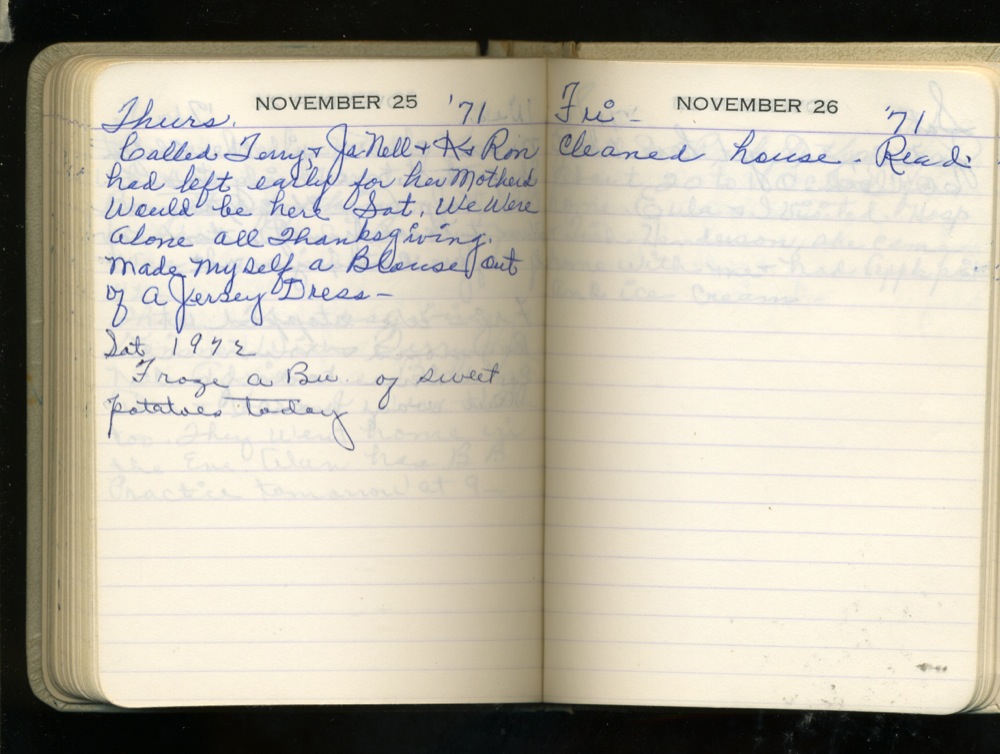 NOVEMBER 25
Thurs. '71
Called Terry & JaNell & K & Ron
had left early for her Mothers
Would be here Sat. We Were
alone all Thanksgiving.
Made Myself a Blouse out
of a Jersey Dress-
Sat 1972
Froze a Bu. of sweet
potatoes today
NOVEMBER 26
Fri- '71
Cleaned house. Read.